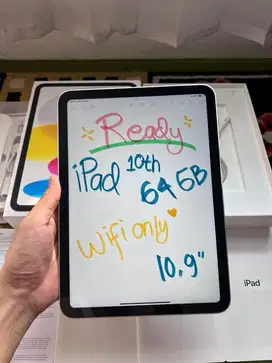 Ready
iPad 10th
64GB
Wifi only
10.9"
iPad